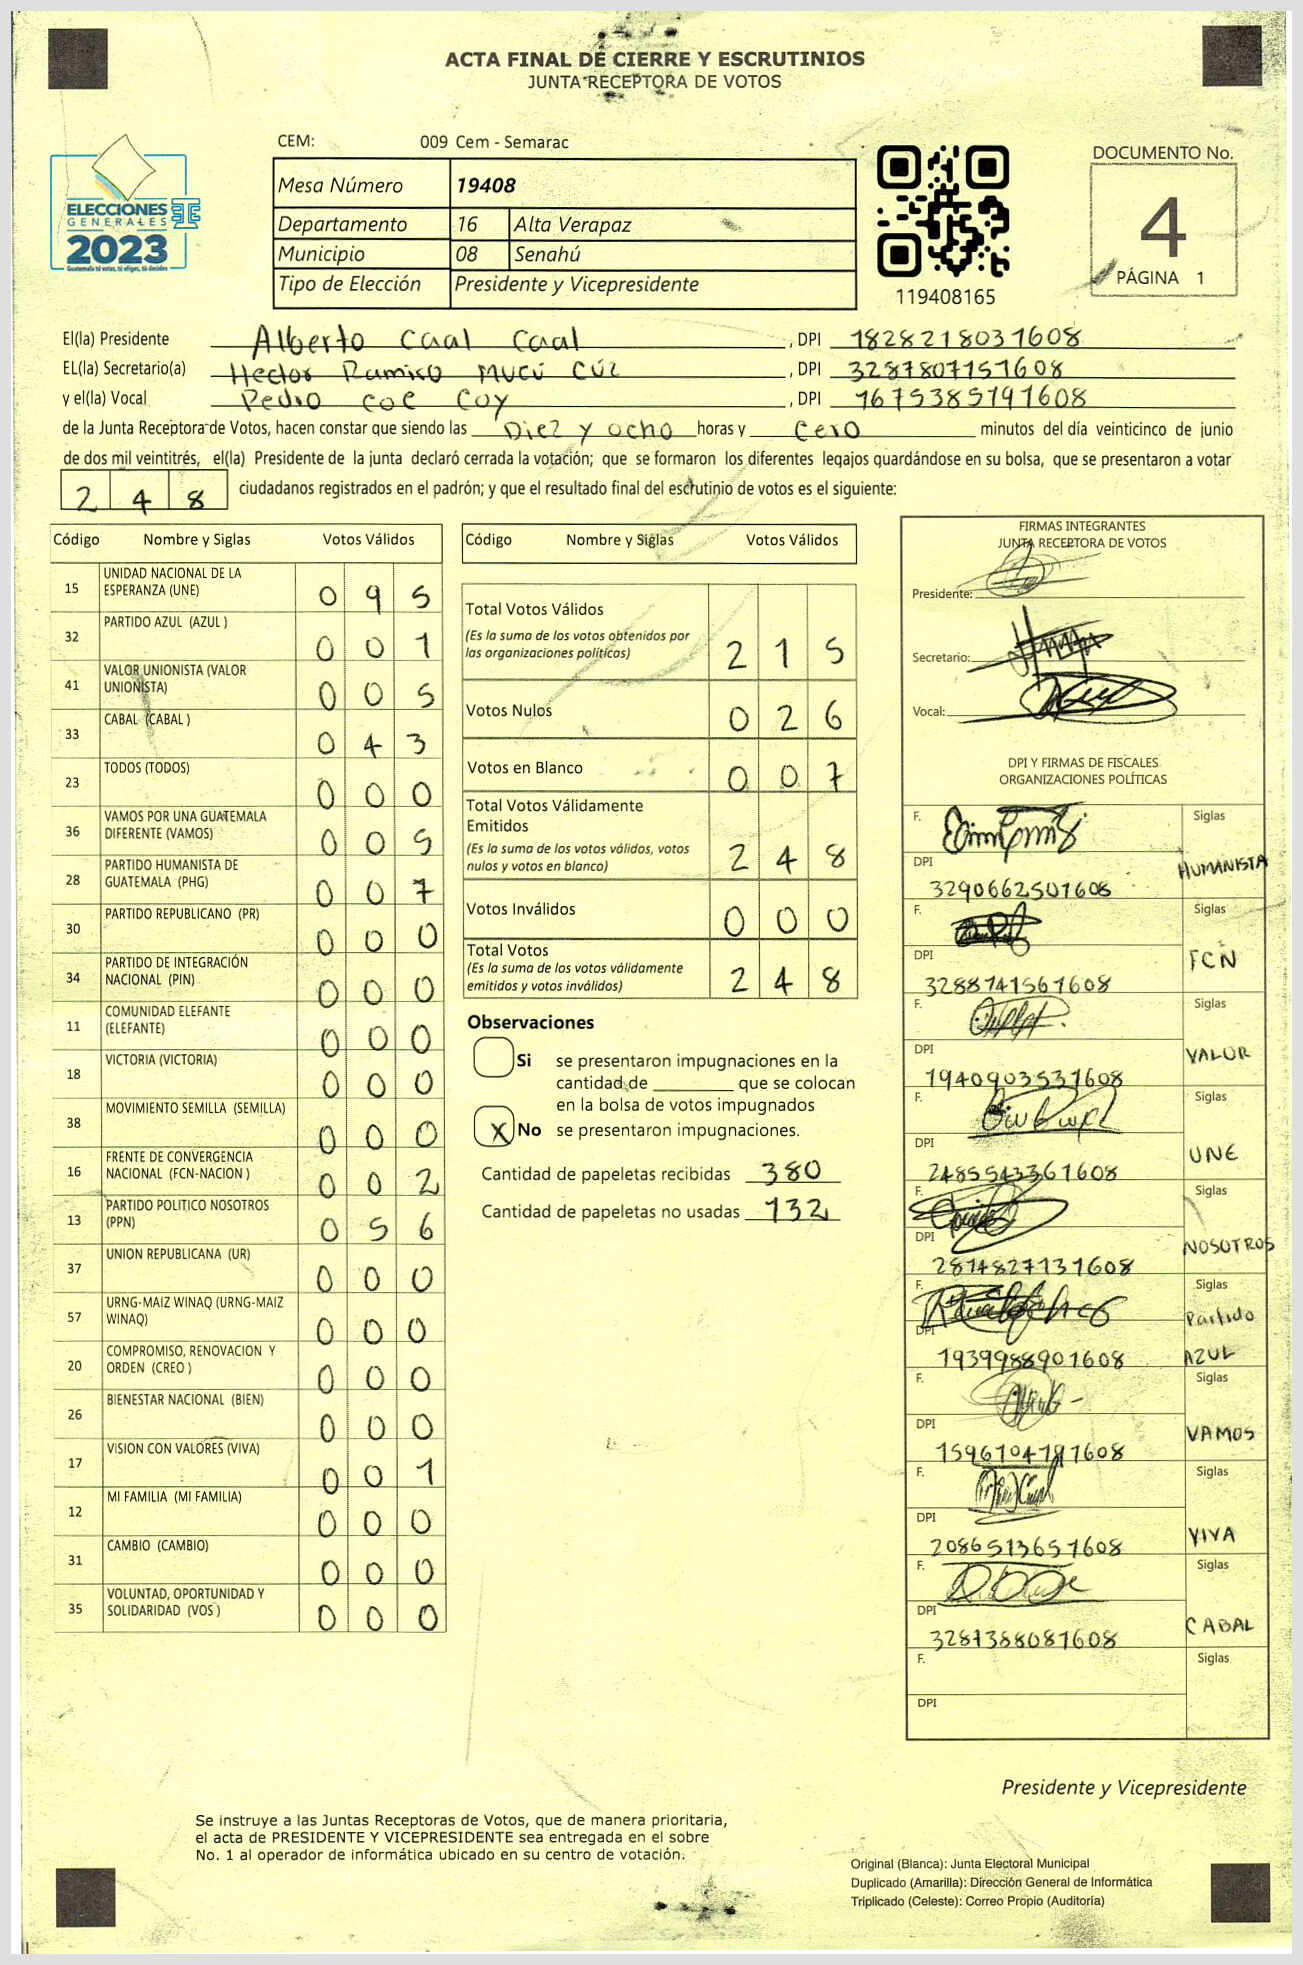 ACTA FINAL DE CIERRE Y ESCRUTINIOS
JUNTA RECEPTORA DE VOTOS
ELECCIONES
GENERALES
2023
Guatemala tú votas, tú eliges, tú decides
CEM: 009 Cem - Semarac
Mesa Número 19408
Departamento 16 Alta Verapaz
Municipio 08 Senahú
Tipo de Elección Presidente y Vicepresidente
119408165
DOCUMENTO No.
4
PÁGINA 1
El(la) Presidente Alberto Caal Caal , DPI 1828218031608
EL(la) Secretario(a) Hector Ramiro Mucú Cúz , DPI 3287807151608
y el(la) Vocal Pedro Coc Cuy , DPI 1675385791608
de la Junta Receptora de Votos, hacen constar que siendo las Diez y ocho horas y Cero minutos del día veinticinco de junio
de dos mil veintitrés, el(la) Presidente de la junta declaró cerrada la votación; que se formaron los diferentes legajos guardándose en su bolsa, que se presentaron a votar
2 4 8 ciudadanos registrados en el padrón; y que el resultado final del escrutinio de votos es el siguiente:
Código Nombre y Siglas Votos Válidos
15 UNIDAD NACIONAL DE LA ESPERANZA (UNE) 0 9 5
32 PARTIDO AZUL (AZUL ) 0 0 1
41 VALOR UNIONISTA (VALOR UNIONISTA) 0 0 5
33 CABAL (CABAL ) 0 4 3
23 TODOS (TODOS) 0 0 0
36 VAMOS POR UNA GUATEMALA DIFERENTE (VAMOS) 0 0 5
28 PARTIDO HUMANISTA DE GUATEMALA (PHG) 0 0 7
30 PARTIDO REPUBLICANO (PR) 0 0 0
34 PARTIDO DE INTEGRACIÓN NACIONAL (PIN) 0 0 0
11 COMUNIDAD ELEFANTE (ELEFANTE) 0 0 0
18 VICTORIA (VICTORIA) 0 0 0
38 MOVIMIENTO SEMILLA (SEMILLA) 0 0 0
16 FRENTE DE CONVERGENCIA NACIONAL (FCN-NACION ) 0 0 2
13 PARTIDO POLITICO NOSOTROS (PPN) 0 5 6
37 UNION REPUBLICANA (UR) 0 0 0
57 URNG-MAIZ WINAQ (URNG-MAIZ WINAQ) 0 0 0
20 COMPROMISO, RENOVACION Y ORDEN (CREO ) 0 0 0
26 BIENESTAR NACIONAL (BIEN) 0 0 0
17 VISION CON VALORES (VIVA) 0 0 1
12 MI FAMILIA (MI FAMILIA) 0 0 0
31 CAMBIO (CAMBIO) 0 0 0
35 VOLUNTAD, OPORTUNIDAD Y SOLIDARIDAD (VOS ) 0 0 0
Código Nombre y Siglas Votos Válidos
Total Votos Válidos 2 1 5
(Es la suma de los votos obtenidos por
las organizaciones políticas)
Votos Nulos 0 2 6
Votos en Blanco 0 0 7
Total Votos Válidamente
Emitidos 2 4 8
(Es la suma de los votos válidos, votos
nulos y votos en blanco)
Votos Inválidos 0 0 0
Total Votos 2 4 8
(Es la suma de los votos válidamente
emitidos y votos inválidos)
Observaciones
Si se presentaron impugnaciones en la
cantidad de ________ que se colocan
en la bolsa de votos impugnados
X No se presentaron impugnaciones.
Cantidad de papeletas recibidas 380
Cantidad de papeletas no usadas 132
FIRMAS INTEGRANTES
JUNTA RECEPTORA DE VOTOS
Presidente:
Secretario:
Vocal:
DPI Y FIRMAS DE FISCALES
ORGANIZACIONES POLÍTICAS
F. Siglas
DPI 3290662501608 HUMANISTA
F. Siglas
DPI 3288741561608 FCN
F. Siglas
DPI 1940903531608 VALOR
F. Siglas
DPI 2485543361608 UNE
F. Siglas
DPI 2814827131608 NOSOTROS
F. Siglas
DPI 1939988901608 Partido AZUL
F. Siglas
DPI VAMOS
F. Siglas
DPI 2086513651608 VIVA
F. Siglas
DPI 3287388081608 CABAL
F. Siglas
DPI
Presidente y Vicepresidente
Se instruye a las Juntas Receptoras de Votos, que de manera prioritaria,
el acta de PRESIDENTE Y VICEPRESIDENTE sea entregada en el sobre
No. 1 al operador de informática ubicado en su centro de votación.
Original (Blanca): Junta Electoral Municipal
Duplicado (Amarilla): Dirección General de Informática
Triplicado (Celeste): Correo Propio (Auditoría)